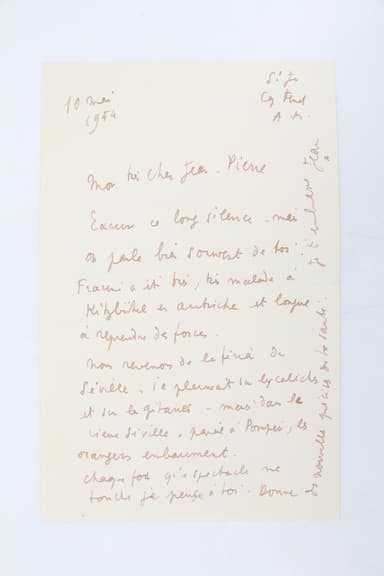 10 mai
1954
St Jn
Cap Ferrat
A. M.
Mon très cher Jean-Pierre
Excuse ce long silence - mais
on parle bien souvent de toi.
Francine a été très, très malade à
Kitzbühel en autriche et longue
à reprendre des forces.
nous revenons de la feria de
Séville. Il pleuvait sur les calèches
et sur les gitanes - mais dans le
vieux Séville, pareil à Pompei, les
orangers embaument.
chaque fois qu'un spectacle me
touche je pense à toi. Donne
des nouvelles précises de ta santé.
je t'embrasse Jean